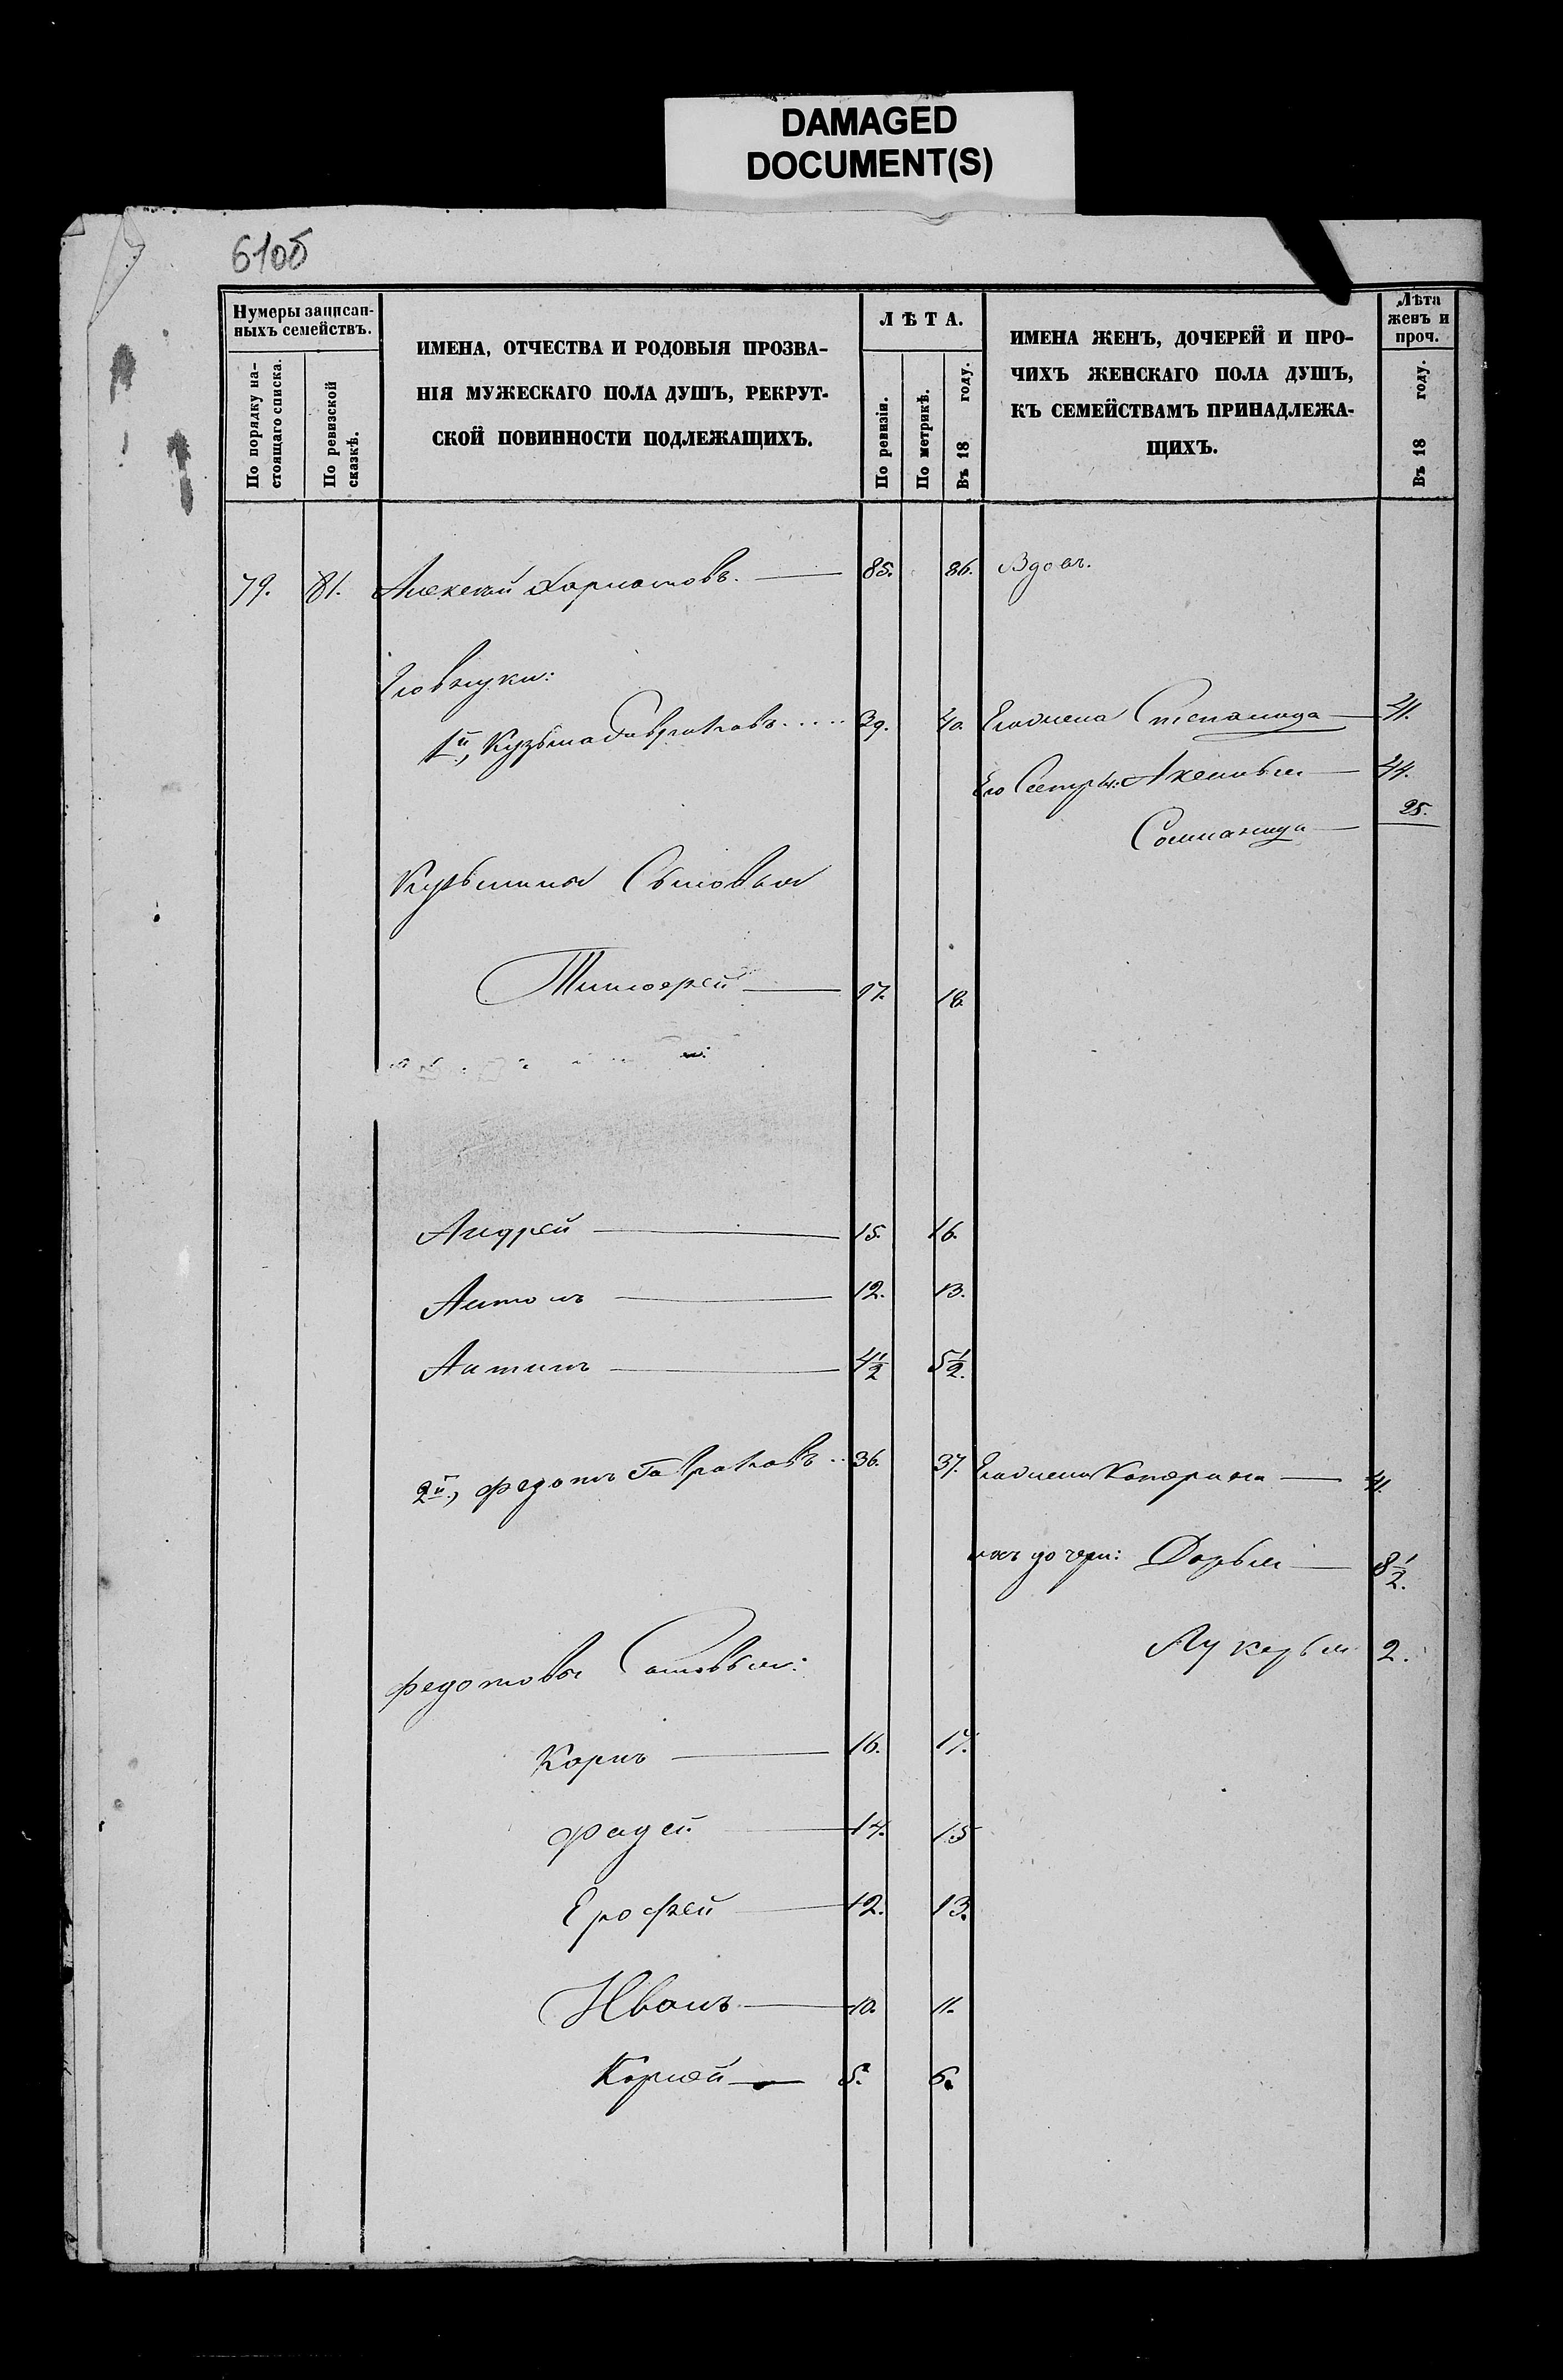 DAMAGED
DOCUMENT(S)
610б
Нумеры записан-
ныхъ семействъ.
По порядку на-
стоящаго списка.
По ревизской
сказкѣ.
ИМЕНА, ОТЧЕСТВА И РОДОВЫЯ ПРОЗВА-
НІЯ МУЖЕСКАГО ПОЛА ДУШЪ, РЕКРУТ-
СКОЙ ПОВИННОСТИ ПОДЛЕЖАЩИХЪ.
ЛѢТА.
По ревизіи.
По метрикѣ.
Въ 18 году.
ИМЕНА ЖЕНЪ, ДОЧЕРЕЙ И ПРО-
ЧИХЪ ЖЕНСКАГО ПОЛА ДУШЪ,
КЪ СЕМЕЙСТВАМЪ ПРИНАДЛЕЖА-
ЩИХЪ.
Лѣта
женъ и
проч.
Въ 18 году.
79. 81. Алексѣй 85. 86. Вдовъ.
Его внуки:
1й, Кузьма Гавриловъ 39. 40. Его жена Степанида 41.
Его Сестры: Аксинья 44.
25.
Кузьмины Сыновья
Тимофей 17. 18.
Андрей 15. 16.
Антонъ 12. 13.
Антипъ 4 1/2 5 1/2.
2й, Федотъ Гавриловъ 36. 37. Его жена Катерина 41.
ихъ дочери: Дарья 8 1/2.
Лукерья 2.
Федотовы Сыновья:
Карпъ 16. 17.
Фадей 14. 15
Ерофей 12. 13.
Иванъ 10. 11.
Корней 5. 6.